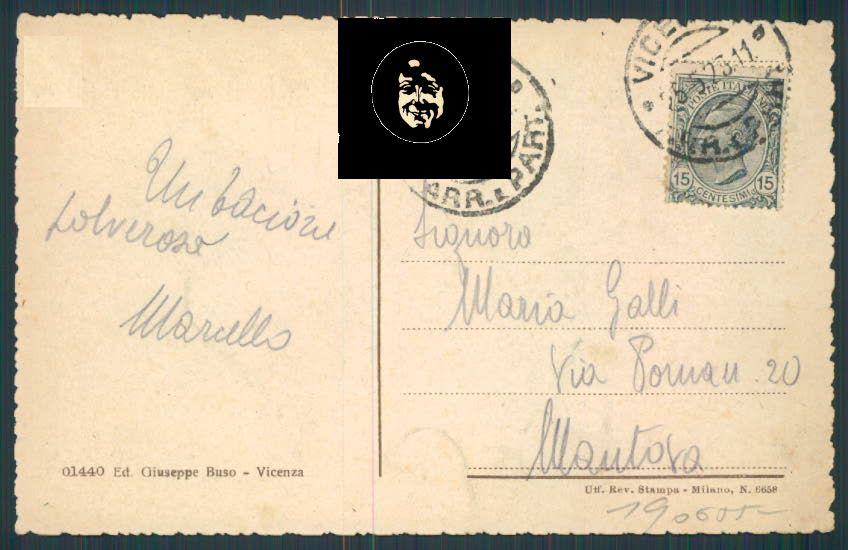 Un bacione
polveroso
Marcello
01440 Ed. Giuseppe Buso - Vicenza
ARR. E PART.
15 CENTESIMI 15
Signora
Maria Galli
Via 20
Mantova
Uff. Rev. Stampa - Milano, N. 6658